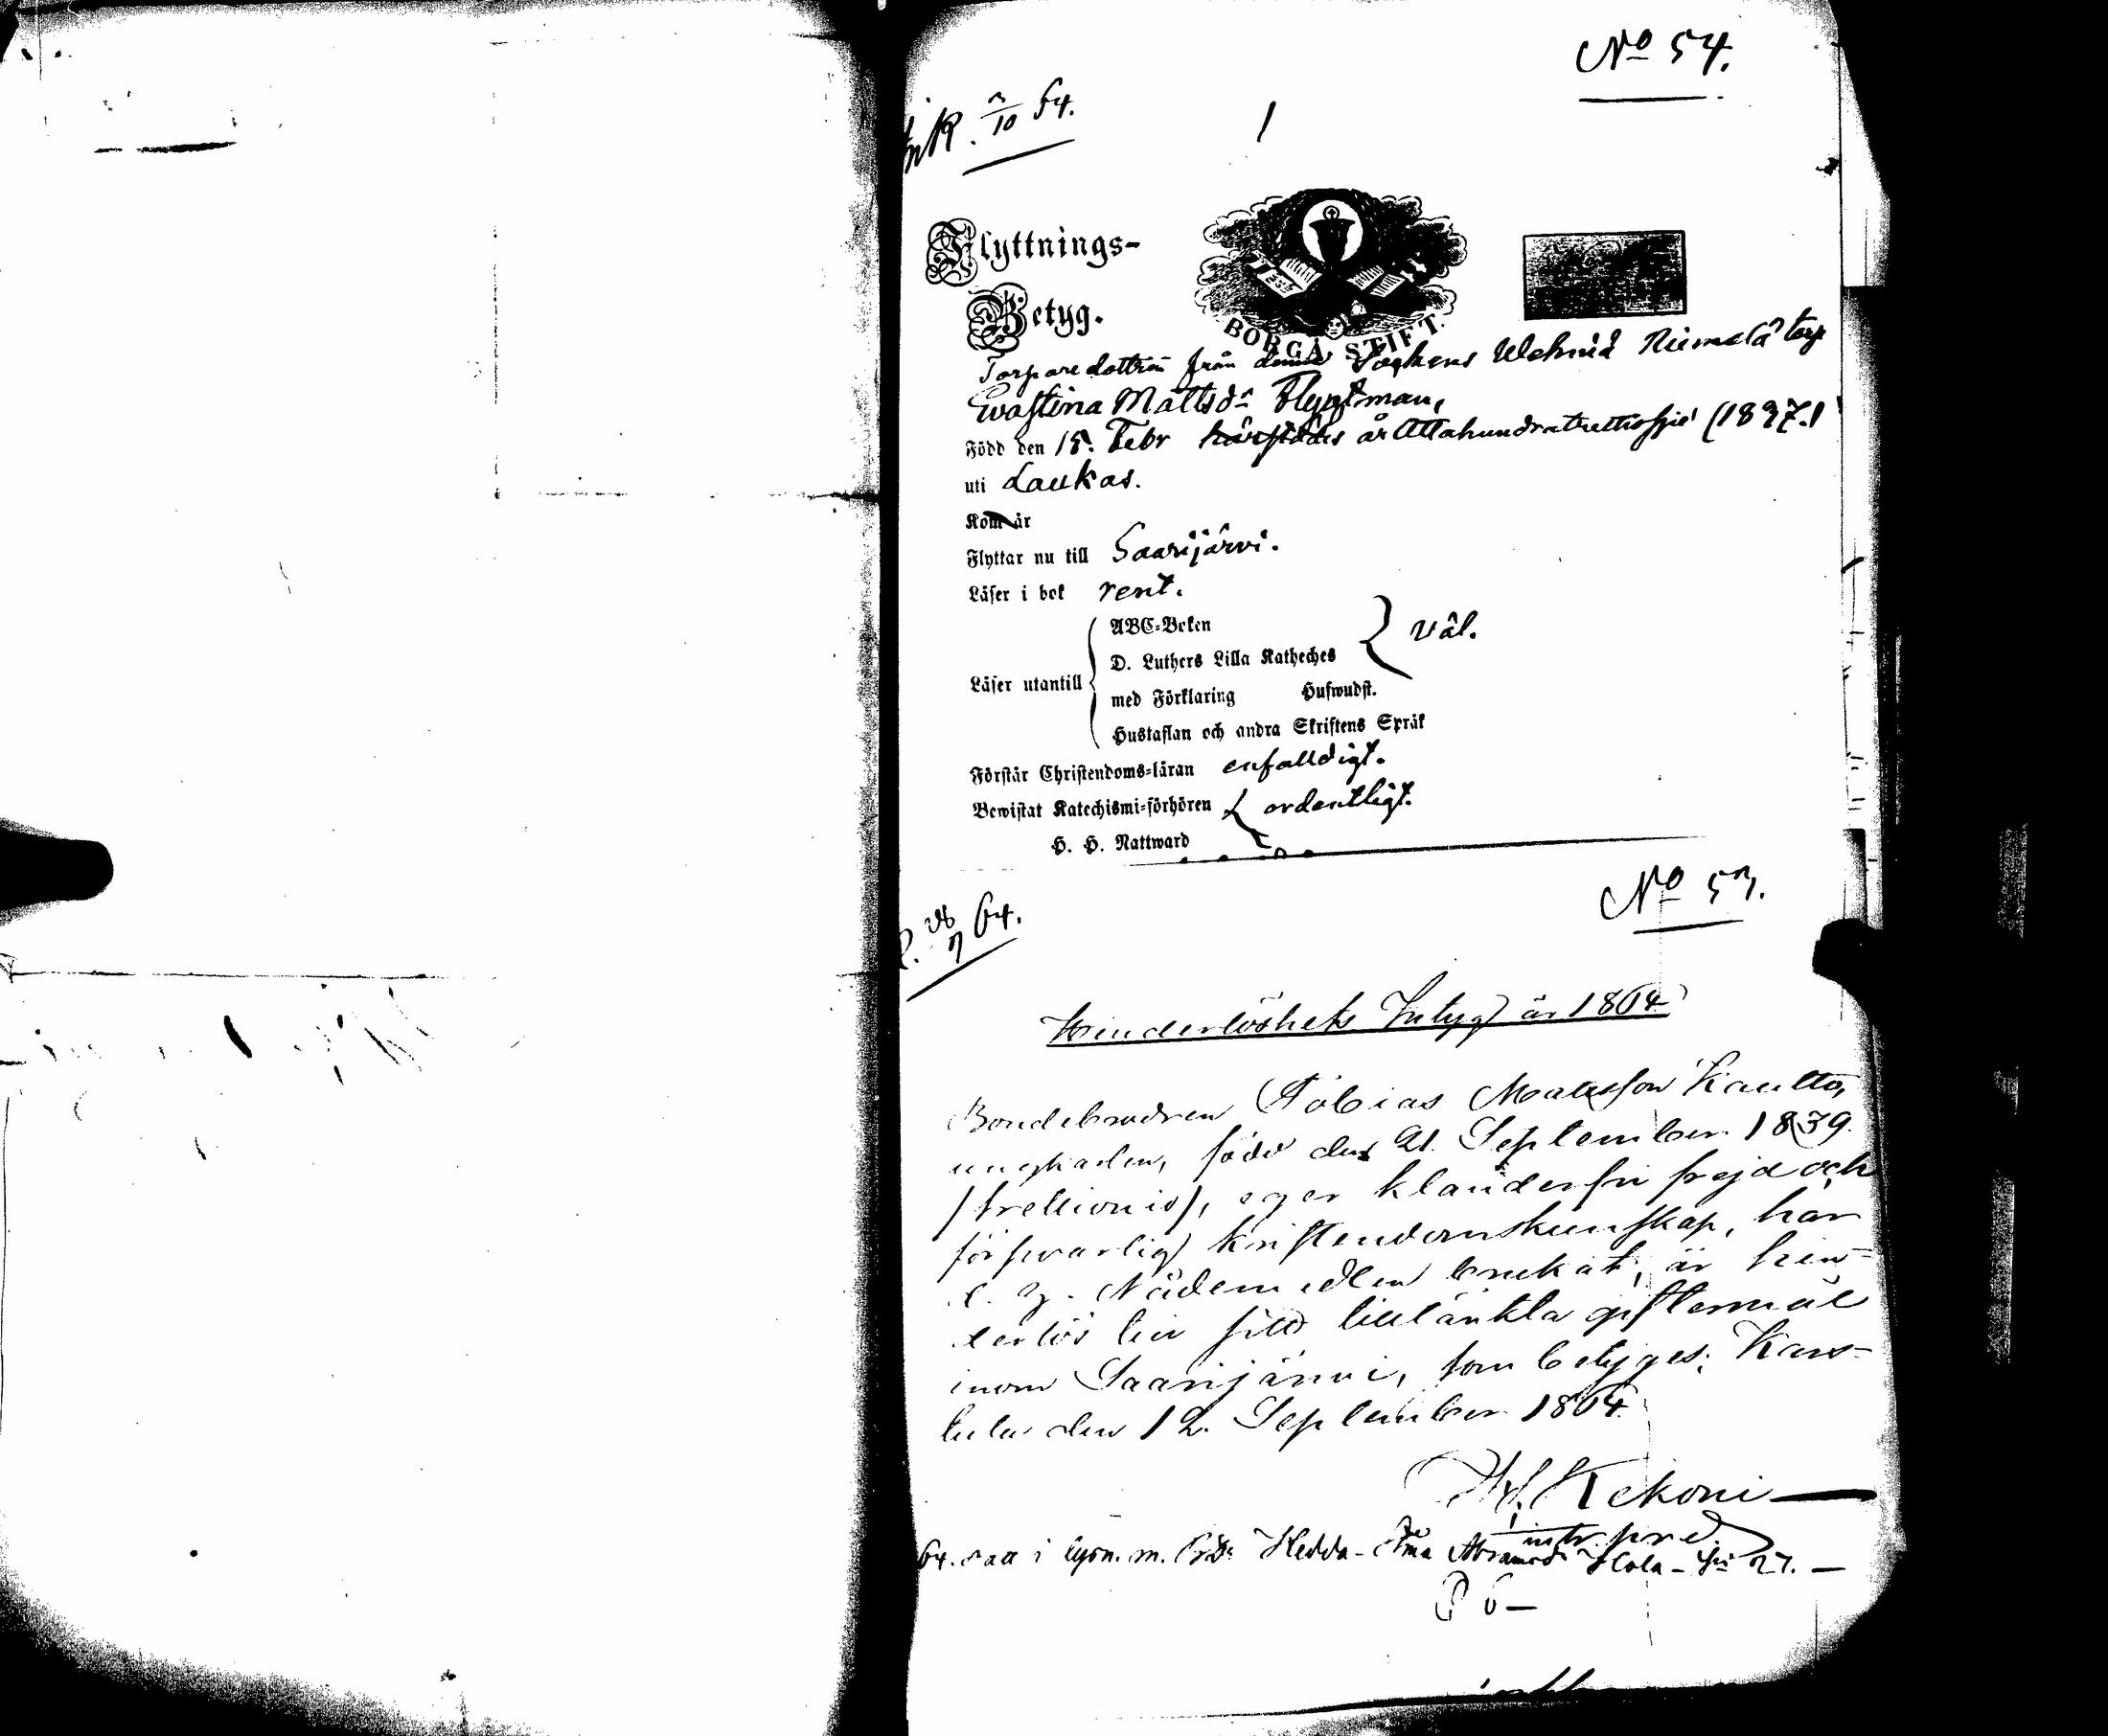 No 54.
ink. 3/10 64.
Flyttnings-
Betyg.
BORGÅ STIFT.
Torparedottren från denna Sockens Wehniä Niemelä torp
Evastina Mattsdr Flygtman,
Född den 15. Febr härstädes år Attahundratrettiosju (1837.)
uti Laukas.
Kom år
Flyttar nu till Saarijärvi.
Läser i bok rent.
ABC-Boken
D. Luthers Lilla Katheches
väl.
Läser utantill
med Förklaring Hufwudst.
Hustaflan och andra Skriftens Språk
Förstår Christendoms-läran enfalldigt.
Bewistat Katechismi-förhören ordentligt.
H. H. Nattward
No 53.
64.
Hinderlöshets Intyg år 1864
Bondebrodren Tobias Mattsson Kautto,
ungkarlen, född den 21. September 1839.
/trettionio/, eger klanderfri frejd och
försvarlig kristendomskunskap, har
Nådemedlen brukat, är hin-
derlös till sitt tilltänkta giftermål
inom Saarijärvi, som betyges; Kars-
tula den 12. September 1864
Kekoni
64. i lysn. m. Hedda
27.